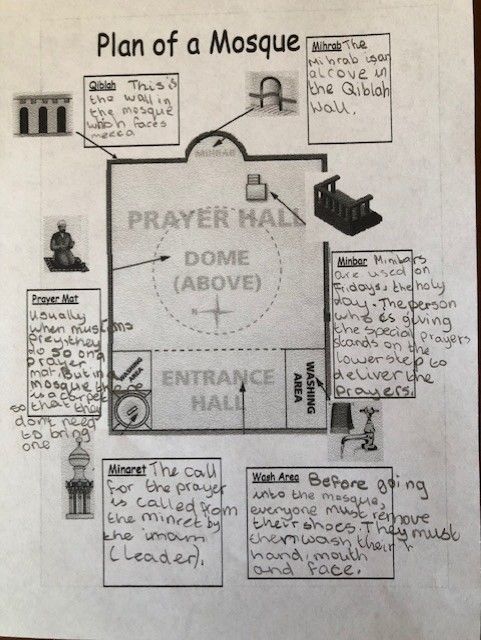 Plan of a Mosque
Qiblah This is
the wall in
the mosque
which faces
mecca
Mihrab The
Mihrab is an
alcove in
the Qiblah
wall.
MIHRAB
PRAYER HALL
DOME
(ABOVE)
N
Prayer Mat
usually
when muslims
prey, they
do so on a
prayer
mat. But in a
mosque there
is a carpet
that they
so
dont need
to bring
one
Minbar Minibars
are used on
Fridays, the holy
day. The person
who is giving
the special prayers
stands on the
lower step to
deliver the
prayers.
WASHING AREA
ENTRANCE
HALL
WASHING
AREA
Minaret The call
for the prayer
is called from
the minret by
the imam
(leader).
Wash Area Before going
into the mosque,
everyone must remove
their shoes. They must
then wash their
hand, mouth
and face.